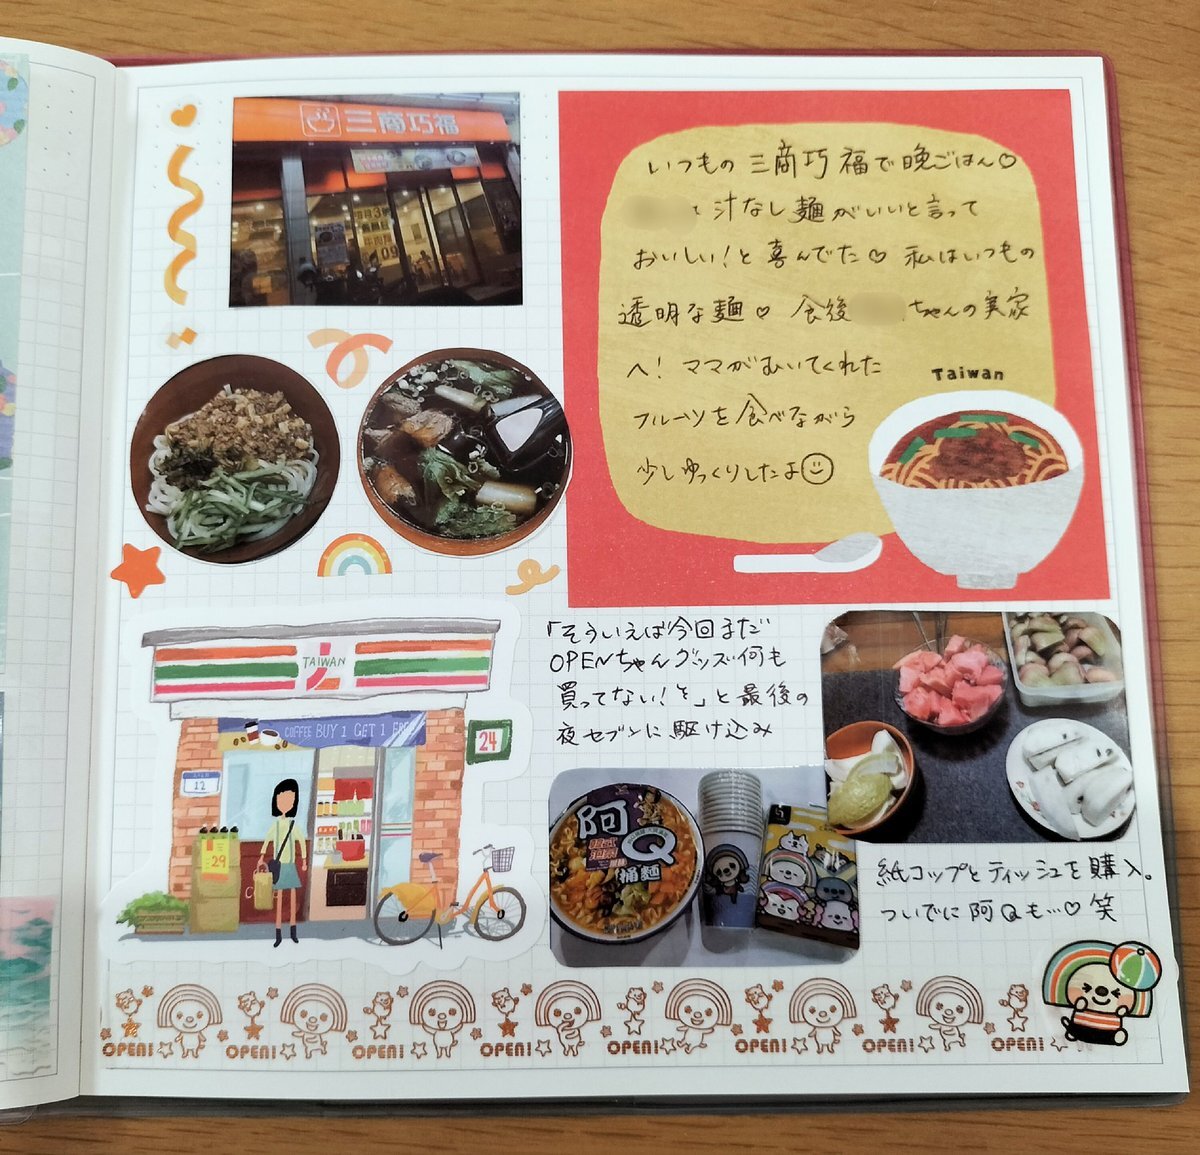 三商巧福
09
いつもの 三商巧福で晩ごはん♡
汁なし麺がいいと言って
おいしい!と喜んでた♡ 私はいつもの
透明な麺♡ 食後 ちゃんの実家
へ! ママがむいてくれた
フルーツを食べながら
少しゆっくりしたよ
Taiwan
TAIWAN
COFFEE BUY 1 GET 1 FREE
24
12
29
「そういえば今回まだ
OPENちゃんグッズ何も
買ってない!」と最後の
夜セブンに駆け込み
阿Q
桶麵
紙コップとティッシュを購入。
ついでに阿Qも…♡ 笑
OPEN! OPEN! OPEN! OPEN! OPEN! OPEN! OPEN! OPEN!